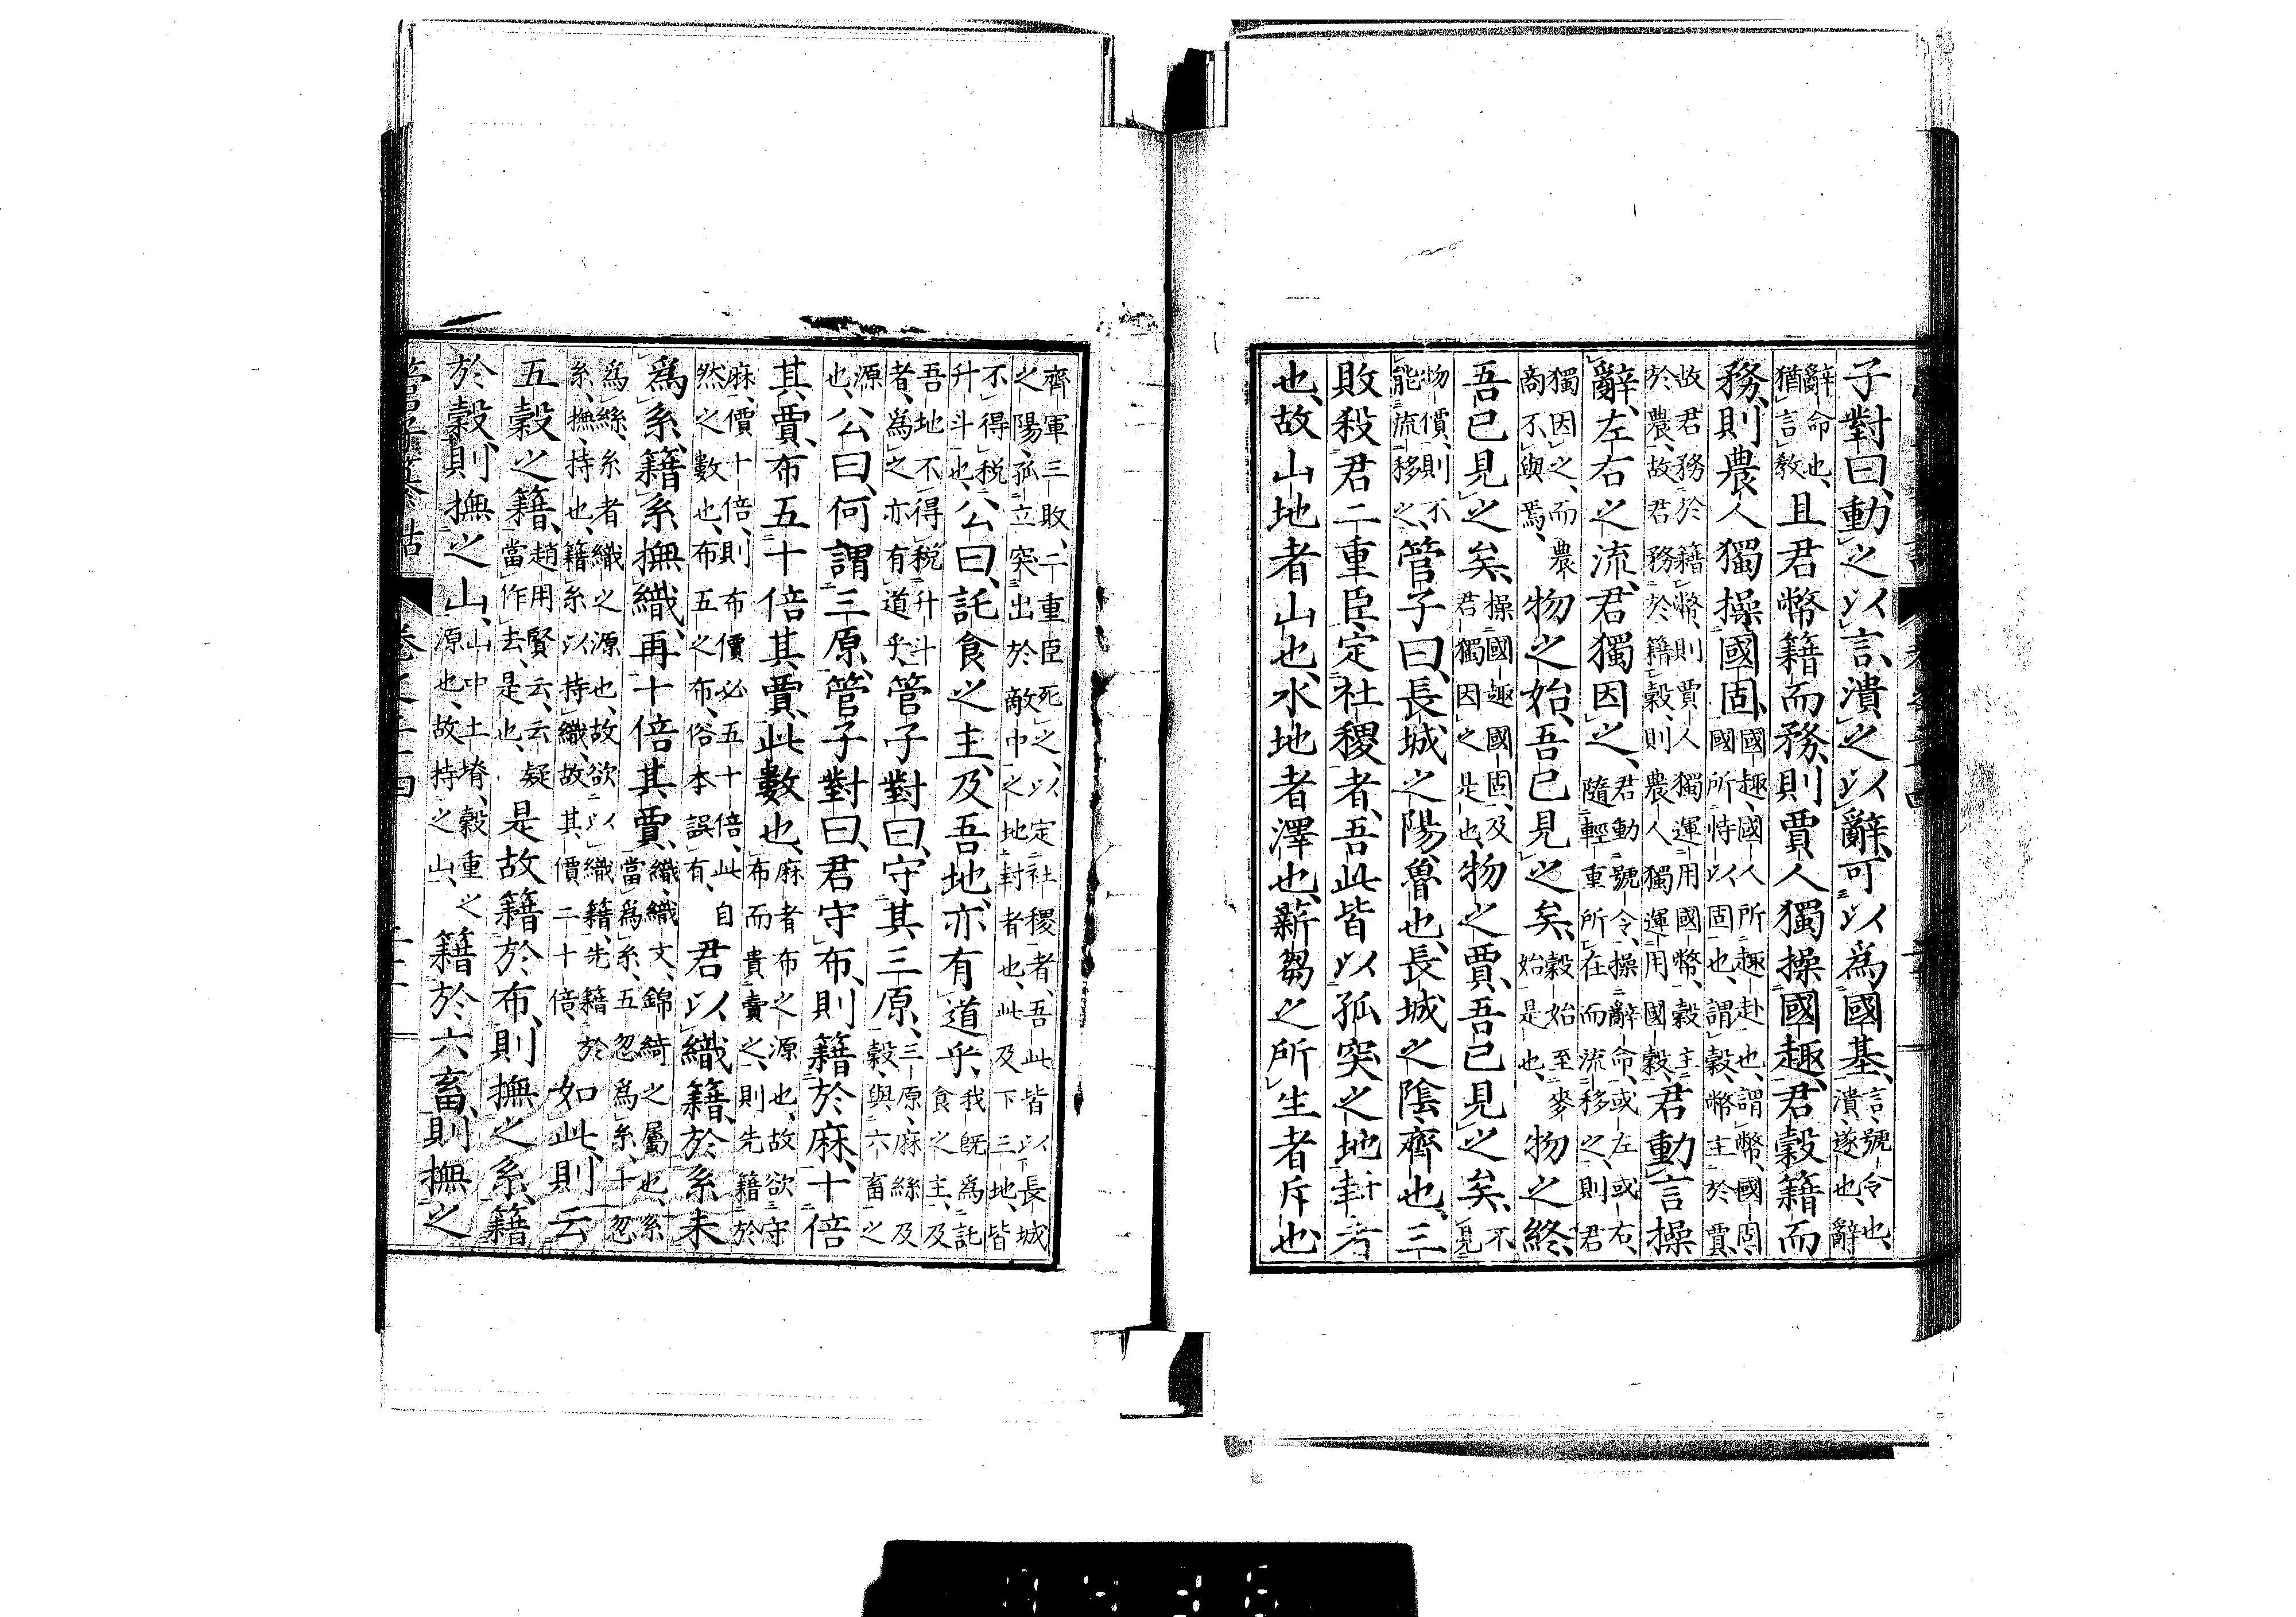 子對曰、動之以言、潰之以辭、可以爲國基、言號令也、潰、遂也、辭
辭命也、猶言教 且君幣籍而務、則賈人獨操國趣、君穀籍而
務、則農人獨操國固、國趣、國人所趣赴也、謂幣、國固、國所恃以固也、謂穀、幣主於賈、
故君務於籍幣、則賈人獨運用國幣、穀主於農、故君務於籍穀、則農人獨運用國穀、君動言操
辭、左右之流、君獨因之、君動號令、操辭命、或左或右、隨輕重所在而流移之、則君
獨因之、而農商不與焉、物之始、吾已見之矣、穀始至麥始是也、物之終、
吾已見之矣、操國趣國固、及君獨因之是也、物之賈、吾已見之矣、不見
物價、則不能流移之、管子曰、長城之陽、魯也、長城之陰、齊也、三
敗殺君二重臣、定社稷者、吾此皆以孤突之地封者
也、故山地者山也、水地者澤也、薪芻之所生者斥也、
齊軍三敗、二重臣死之、以定社稷者、吾此皆以長城之陽、孤立突出於敵中之地封者也、此及下三地、皆
不得税升斗也、公曰、託食之主、及吾地、亦有道乎、我既爲託食之主、及
吾地不得税升斗者、爲之亦有道乎、管子對曰、守其三原、三原、麻絲及穀、與六畜之
源也、公曰、何謂三原、管子對曰、君守布、則籍於麻、十倍
其賈、布五十倍其賈、此數也、麻者布之源也、故欲守布而貴賣之、則先籍於
麻、價十倍、則布價必五十倍、此自然之數也、布五之布、俗本誤有、君以織籍於系、未
爲系籍、系撫織、再十倍其賈、織、織文、錦綺之屬也、系當爲糸、五忽爲糸、十忽
爲絲、糸者織之源也、故欲以織籍、先籍於糸、撫、持也、籍糸以持織、故其價二十倍、如此、則云
五穀之籍、趙用賢云、云疑當作去、是也、是故籍於布、則撫之系、籍
於穀、則撫之山、山中土堉、穀重之源也、故持之山、籍於六畜、則撫之
管子纂詁 卷之二十四